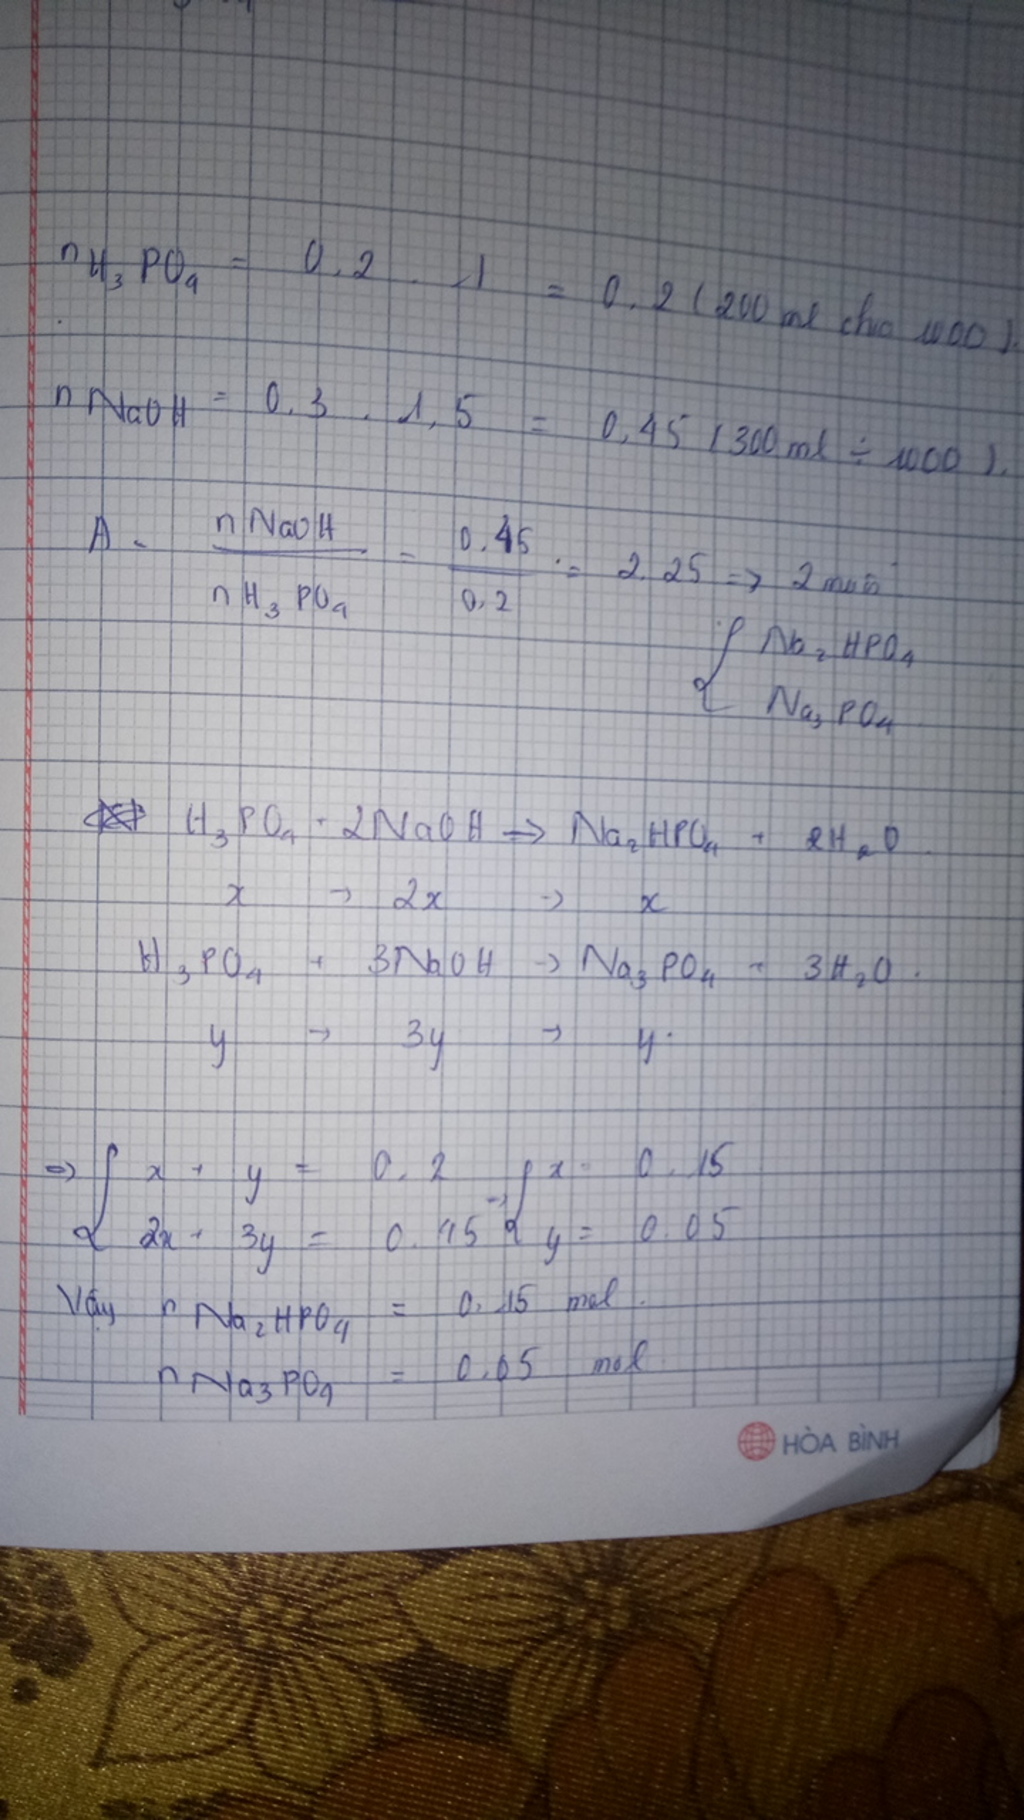 nH₃PO₄ = 0.2 . 1 = 0.2 (200 ml chia 1000).
nNaOH = 0.3 . 1,5 = 0,45 (300 ml ÷ 1000).
A = nNaOH / nH₃PO₄ = 0.45 / 0.2 = 2.25 => 2 muối
{ Na₂HPO₄
Na₃PO₄
H₃PO₄ + 2NaOH => Na₂HPO₄ + 2H₂O
x → 2x → x
H₃PO₄ + 3NaOH → Na₃PO₄ + 3H₂O.
y → 3y → y.
=> { x + y = 0.2 → { x = 0.15
2x + 3y = 0.45 y = 0.05
Vậy nNa₂HPO₄ = 0.15 mol.
nNa₃PO₄ = 0.05 mol
HÒA BÌNH